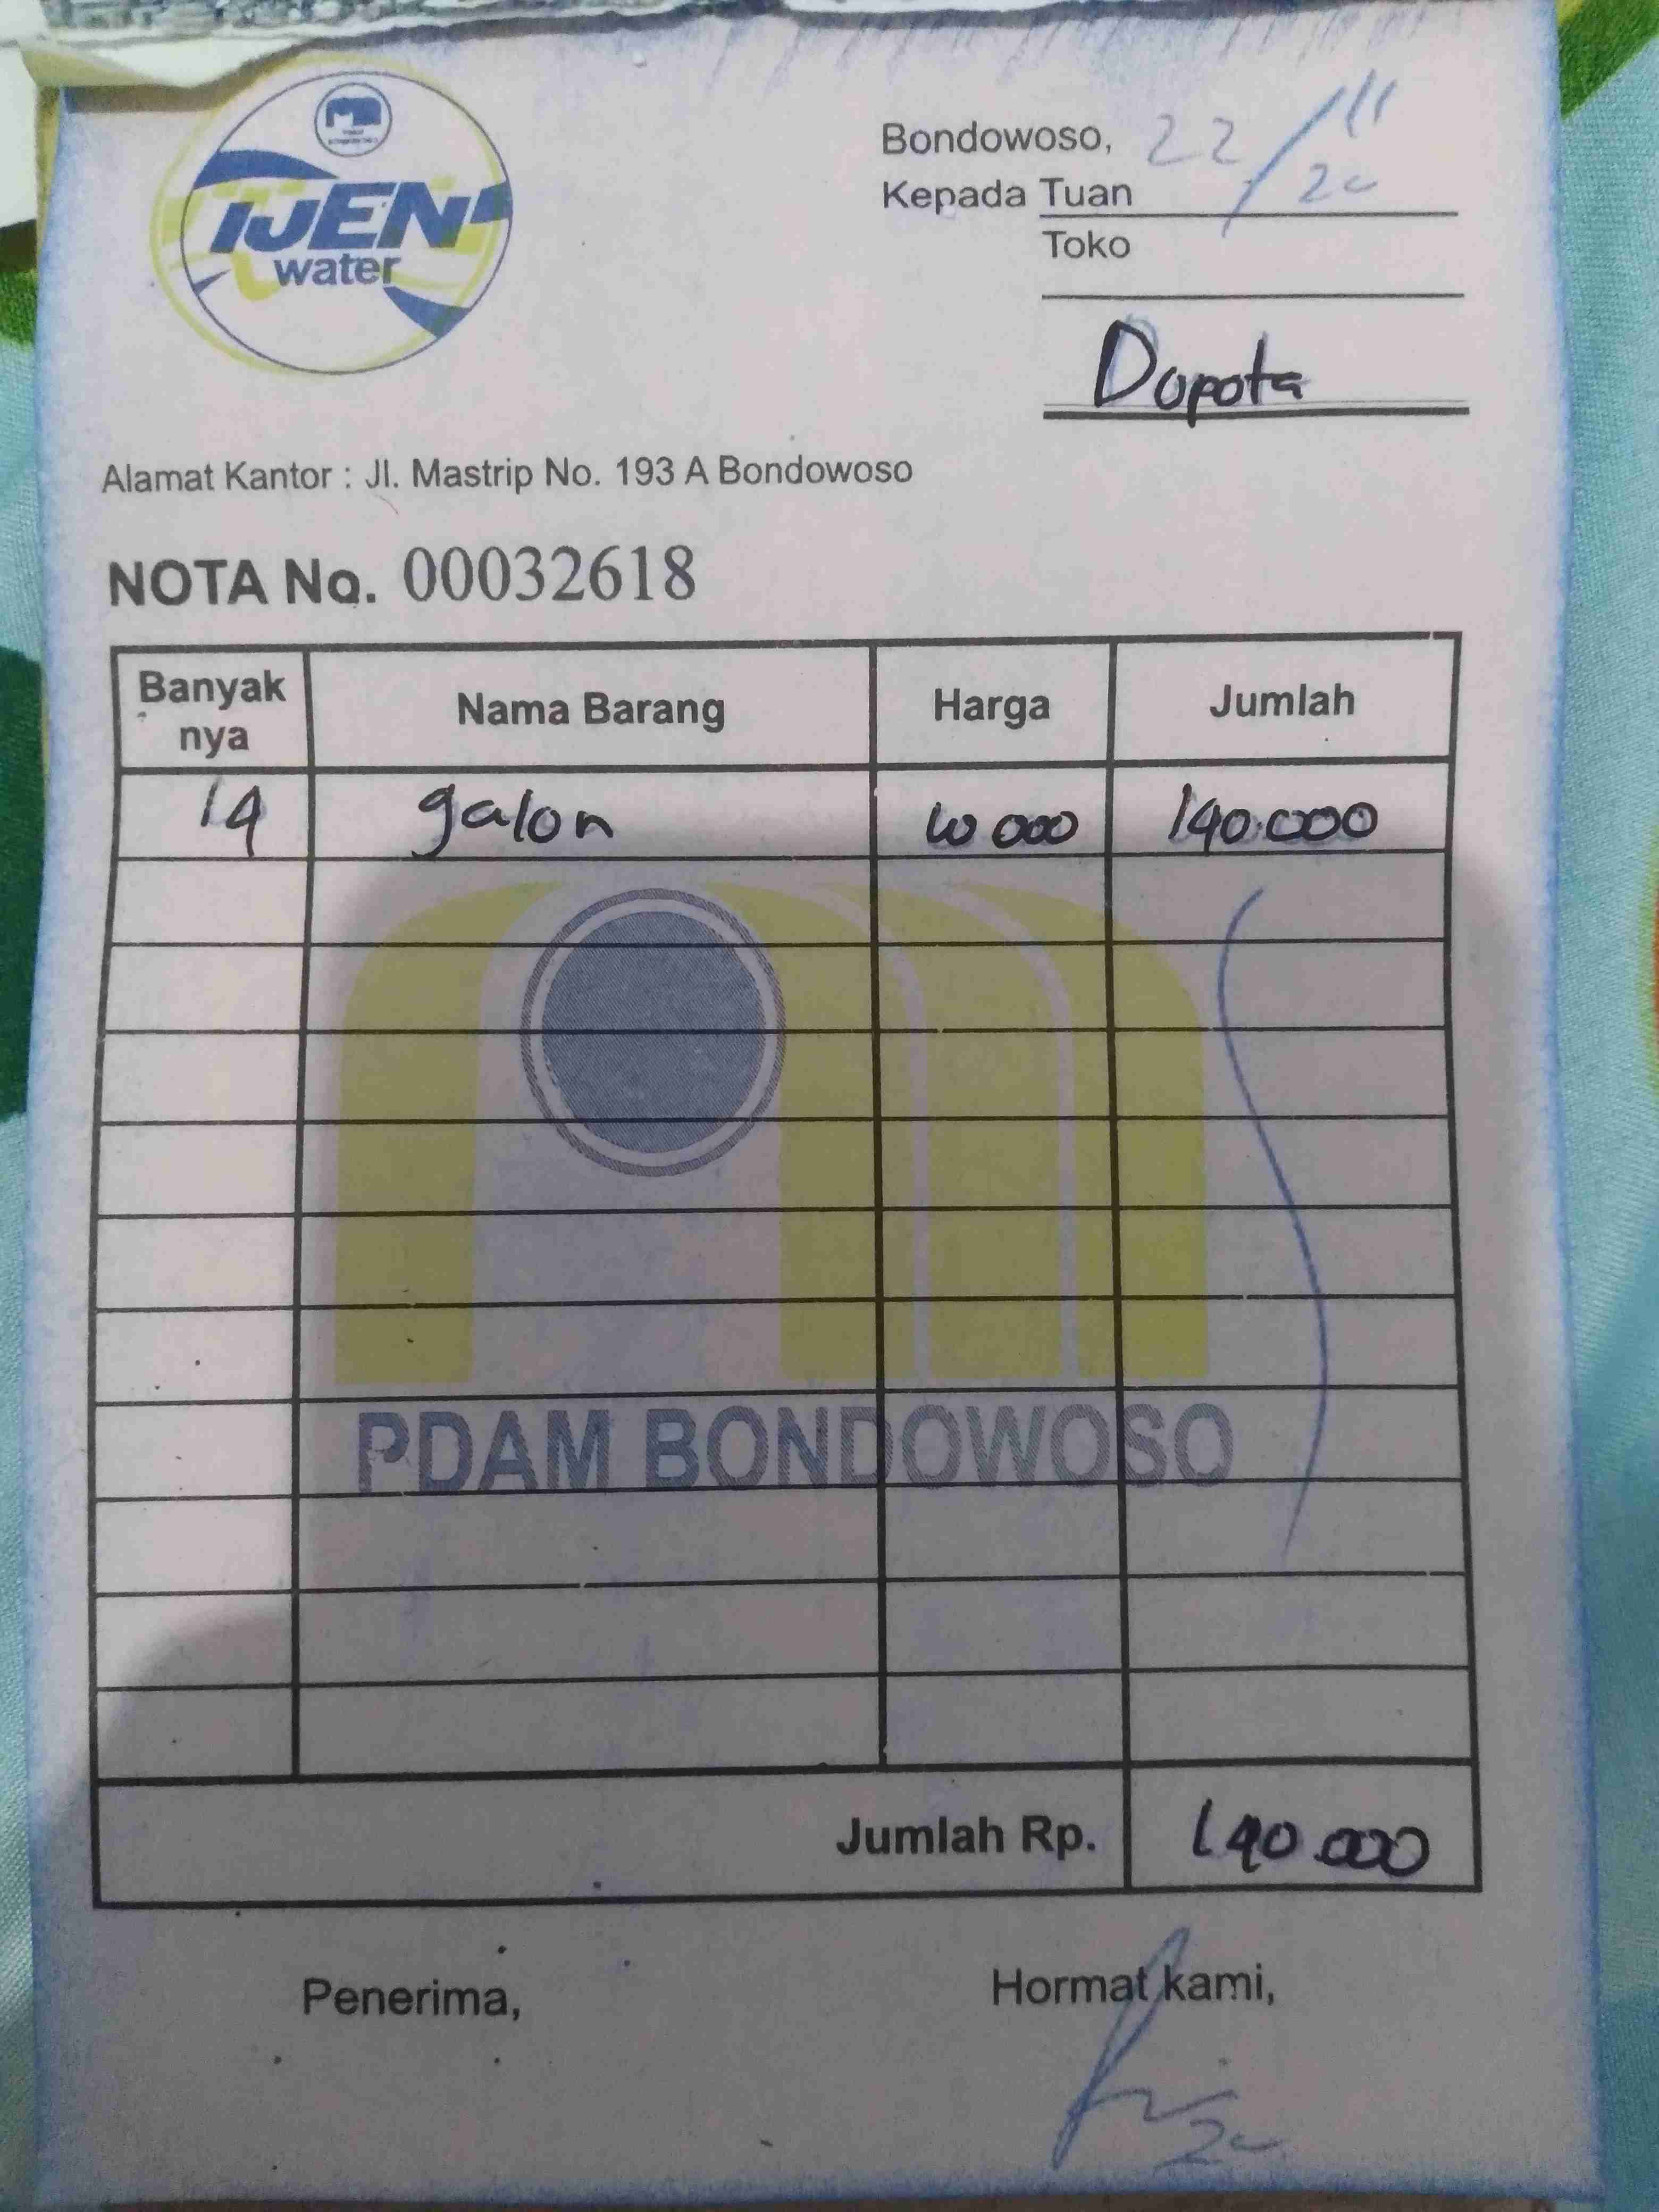 IJEN
water
Bondowoso, 22/11
20
Kepada Tuan
Toko
Dopota
Alamat Kantor : Jl. Mastrip No. 193 A Bondowoso
NOTA No. 00032618
Banyak nya Nama Barang Harga Jumlah
14 galon 10 000 140.000
PDAM BONDOWOSO
Jumlah Rp. 140.000
Penerima, Hormat kami,